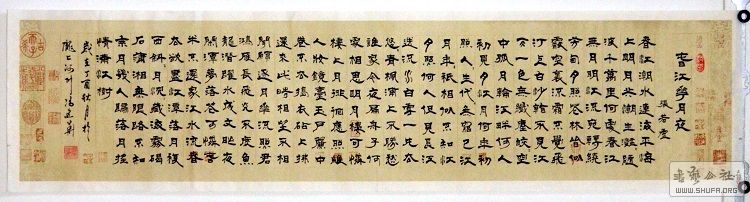 春江花月夜
張若虛
春江潮水連海平海
上明月共潮生灩灩隨
波千萬里何處春江
無月明江流宛轉繞
芳甸月照花林皆似
霰空裏流霜不覺飛
汀上白沙看不見江
天一色無纖塵皎皎空
中孤月輪江畔何人
初見月江月何年初
照人人生代代無窮已江
月年年祇相似不知江
月照何人但見長江
送流水白雲一片去
悠悠青楓浦上不勝愁
誰家今夜扁舟子何
處相思明月樓可憐
樓上月徘徊應照離
人妝鏡臺玉戶簾中
卷不去搗衣砧上拂
還來此時相望不相
聞願逐月華流照君
鴻雁長飛光不度魚
龍潛躍水成文昨夜
閑潭夢落花可憐春
半不還家江水流春
去欲盡江潭落月復
西斜斜月沉沉藏海霧碣
石瀟湘無限路不知
乘月幾人歸落月搖
情滿江樹
歲在丁酉秋月於
隴上
书法公社
WWW.SHUFA.ORG